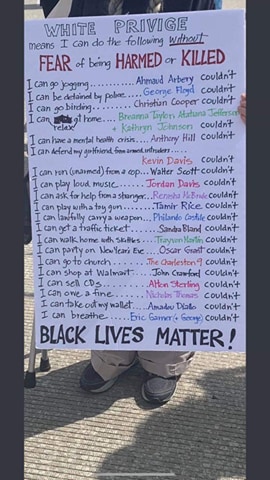 WHITE PRIVIGE
means I can do the following without
FEAR of being HARMED or KILLED
I can go jogging.......... Ahmaud Arbery couldn't
I can be detained by police.... George Floyd couldn't
I can go birding........ Christian Cooper couldn't
I can relax at home... Breanna Taylor, Atatiana Jefferson + Kathryn Johnson couldn't
I can have a mental health crisis... Anthony Hill couldn't
I can defend my girlfriend from armed intruders.....
Kevin Davis couldn't
I can run (unarmed) from a cop... Walter Scott couldn't
I can play loud music....... Jordan Davis couldn't
I can ask for help from a stranger... Renisha McBride couldn't
I can play with a toy gun..... Tamir Rice couldn't
I can lawfully carry a weapon... Philando Castile couldn't
I can get a traffic ticket..... Sandra Bland couldn't
I can walk home with Skittles... Trayvon Martin couldn't
I can party on New Years Eve... Oscar Grant couldn't
I can go to church...... The Charleston 9 couldn't
I can shop at Walmart.... John Crawford couldn't
I can sell CDs......... Alton Sterling couldn't
I can owe a fine....... Nicholas Thomas couldn't
I can take out my wallet.... Amadou Diallo couldn't
I can breathe..... Eric Garner (+ George) couldn't
BLACK LIVES MATTER!